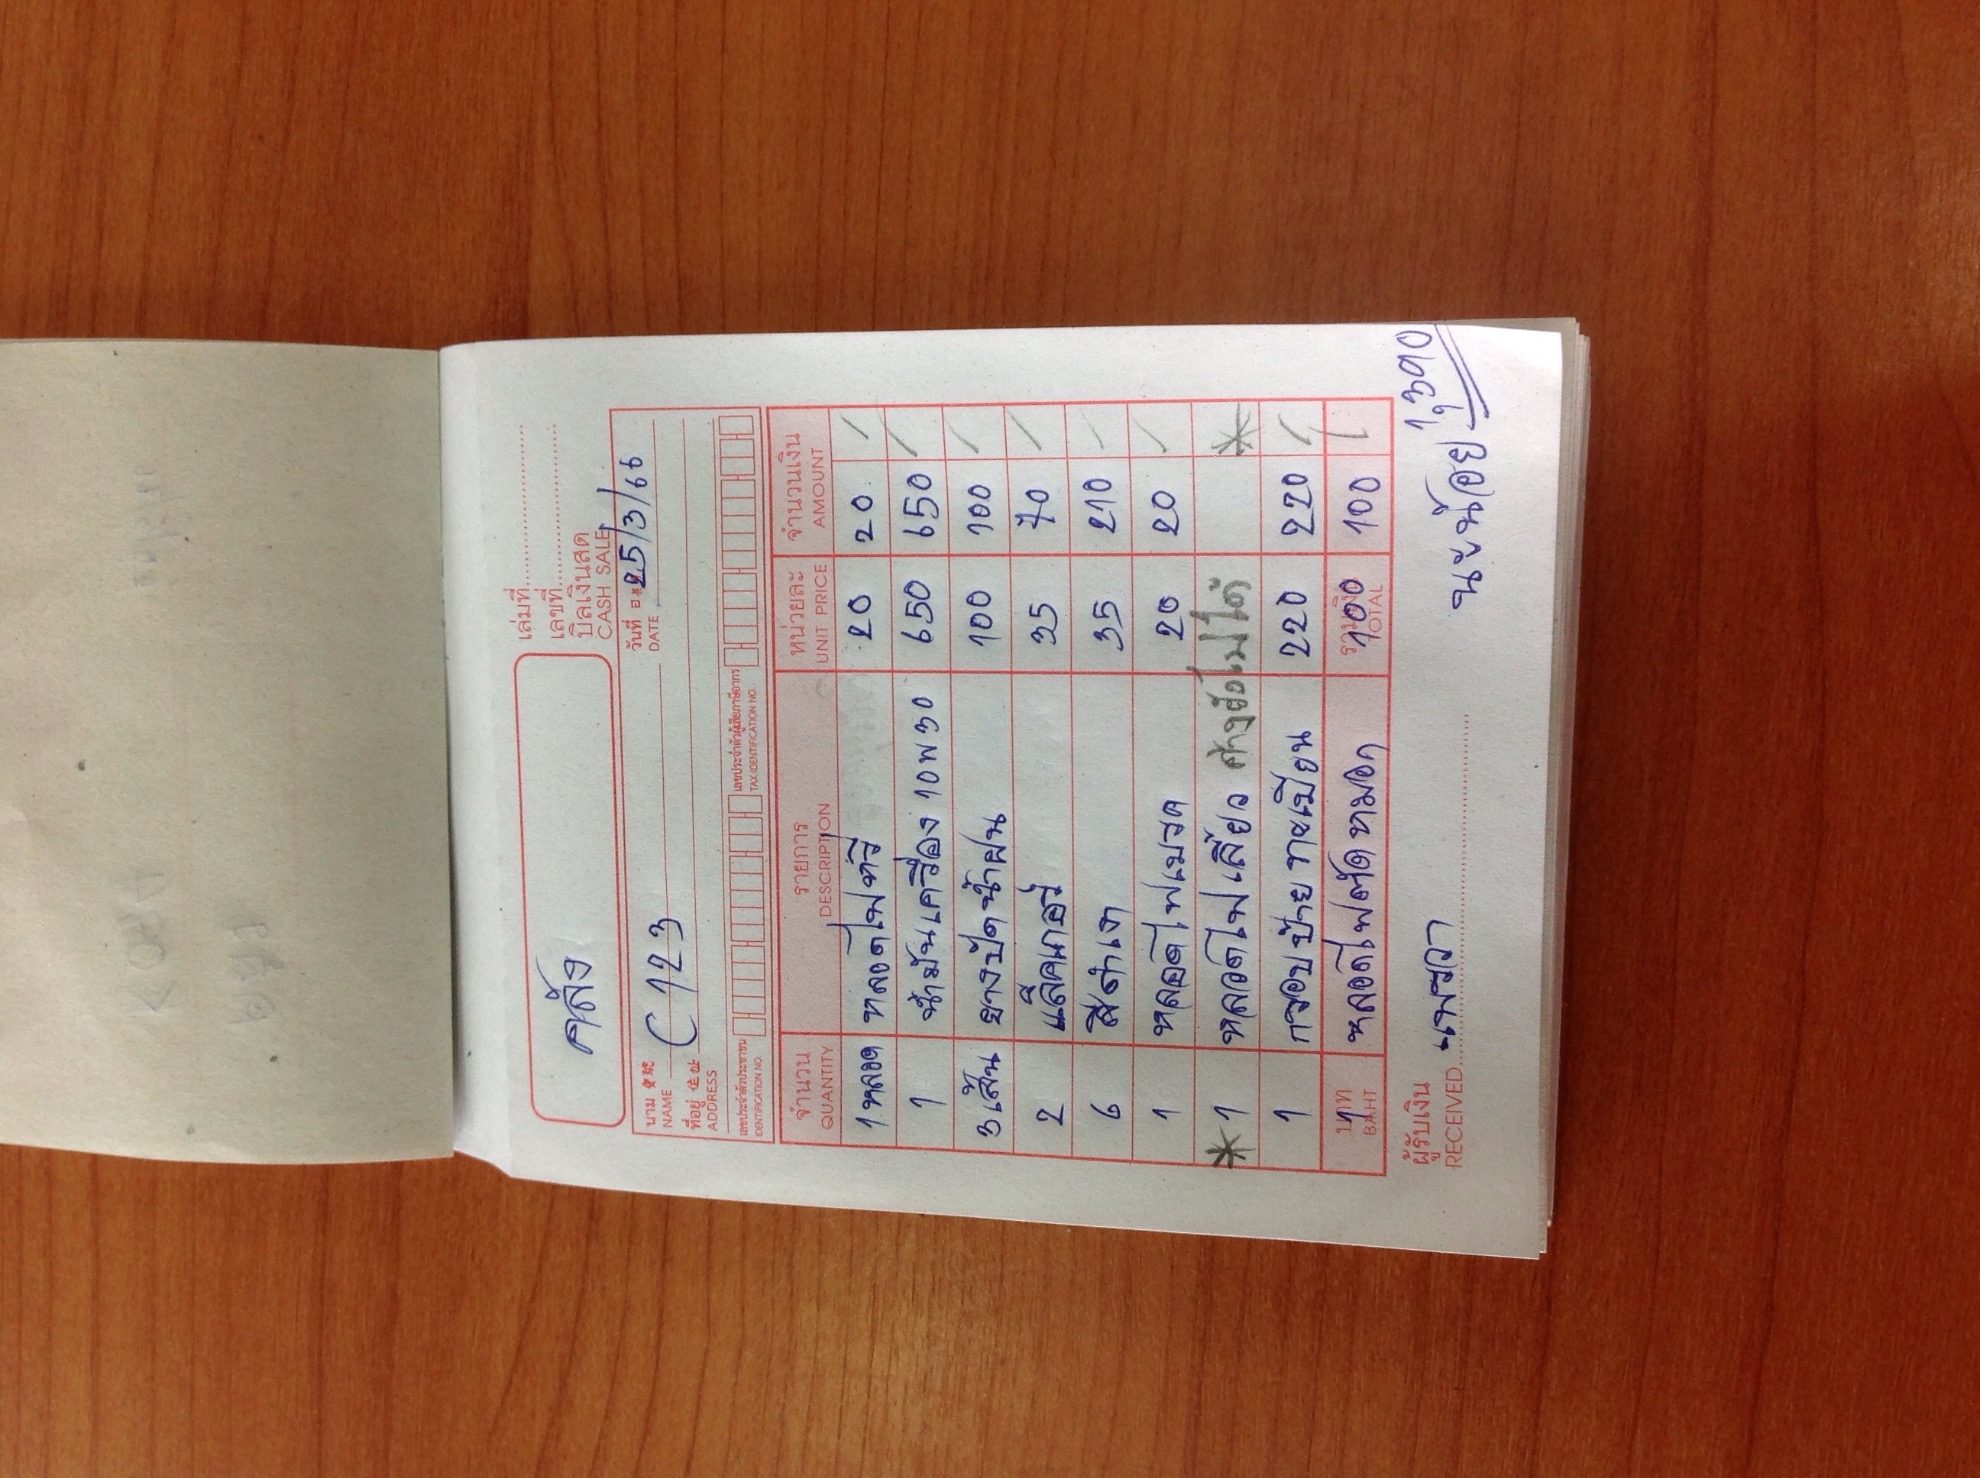 คลัง
เล่มที่
เลขที่
บิลเงินสด
CASH SALE
นาม
NAME
C 123
วันที่ 25/3/66
DATE
ที่อยู่ 住址
ADDRESS
เลขประจำตัวประชาชน
IDENTIFICATION NO.
เลขประจำตัวผู้เสียภาษีอากร
TAX IDENTIFICATION NO.
จำนวน รายการ หน่วยละ จำนวนเงิน
QUANTITY DESCRIPTION UNIT PRICE AMOUNT
1 หลอด หลอดไฟหรี่ 20 20 /
1 น้ำมันเครื่อง 10W30 650 650 /
3 เส้น ยางปัดน้ำฝน 100 100 /
2 แล็คเกอร์ 35 70 /
6 สีดำเงา 35 210 /
1 หลอดไฟเบรค 20 20 /
* 1 หลอดไฟเลี้ยว *
1 กรอบป้ายทะเบียน 220 220 /
1 หลอดไฟตัดหมอก 100 100 /
บาท
BAHT
รวมเงิน
TOTAL
ผู้รับเงิน
RECEIVED
1,390